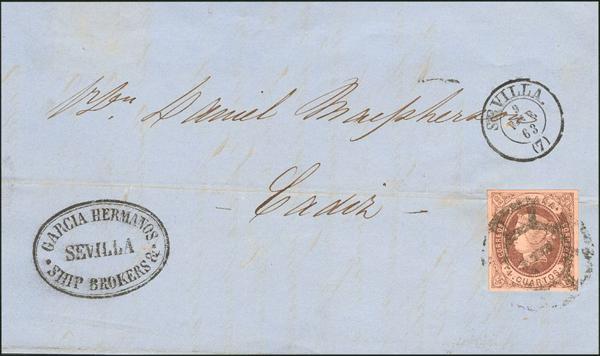 Daniel Macpherson
Cadiz
SEVILLA.
9
FEB
63
(7)
GARCIA HERMANOS
SEVILLA
SHIP BROKERS &.
ESPAÑA
CORREOS
4 CUARTOS